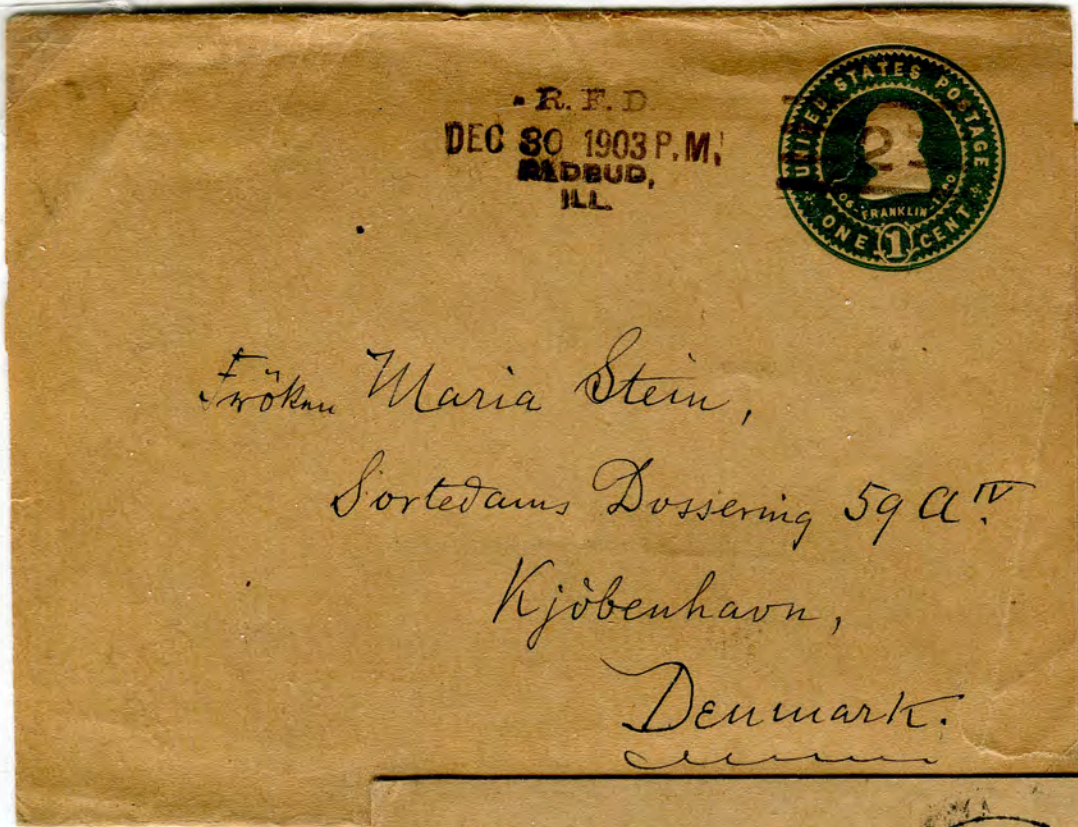 R. F. D.
DEC 30 1903 P.M.
REDBUD,
ILL.
UNITED STATES POSTAGE
FRANKLIN
ONE 1 CENT
Fröken Maria Stein,
Sortedams Dossering 59 A IV.
Kjöbenhavn,
Denmark.